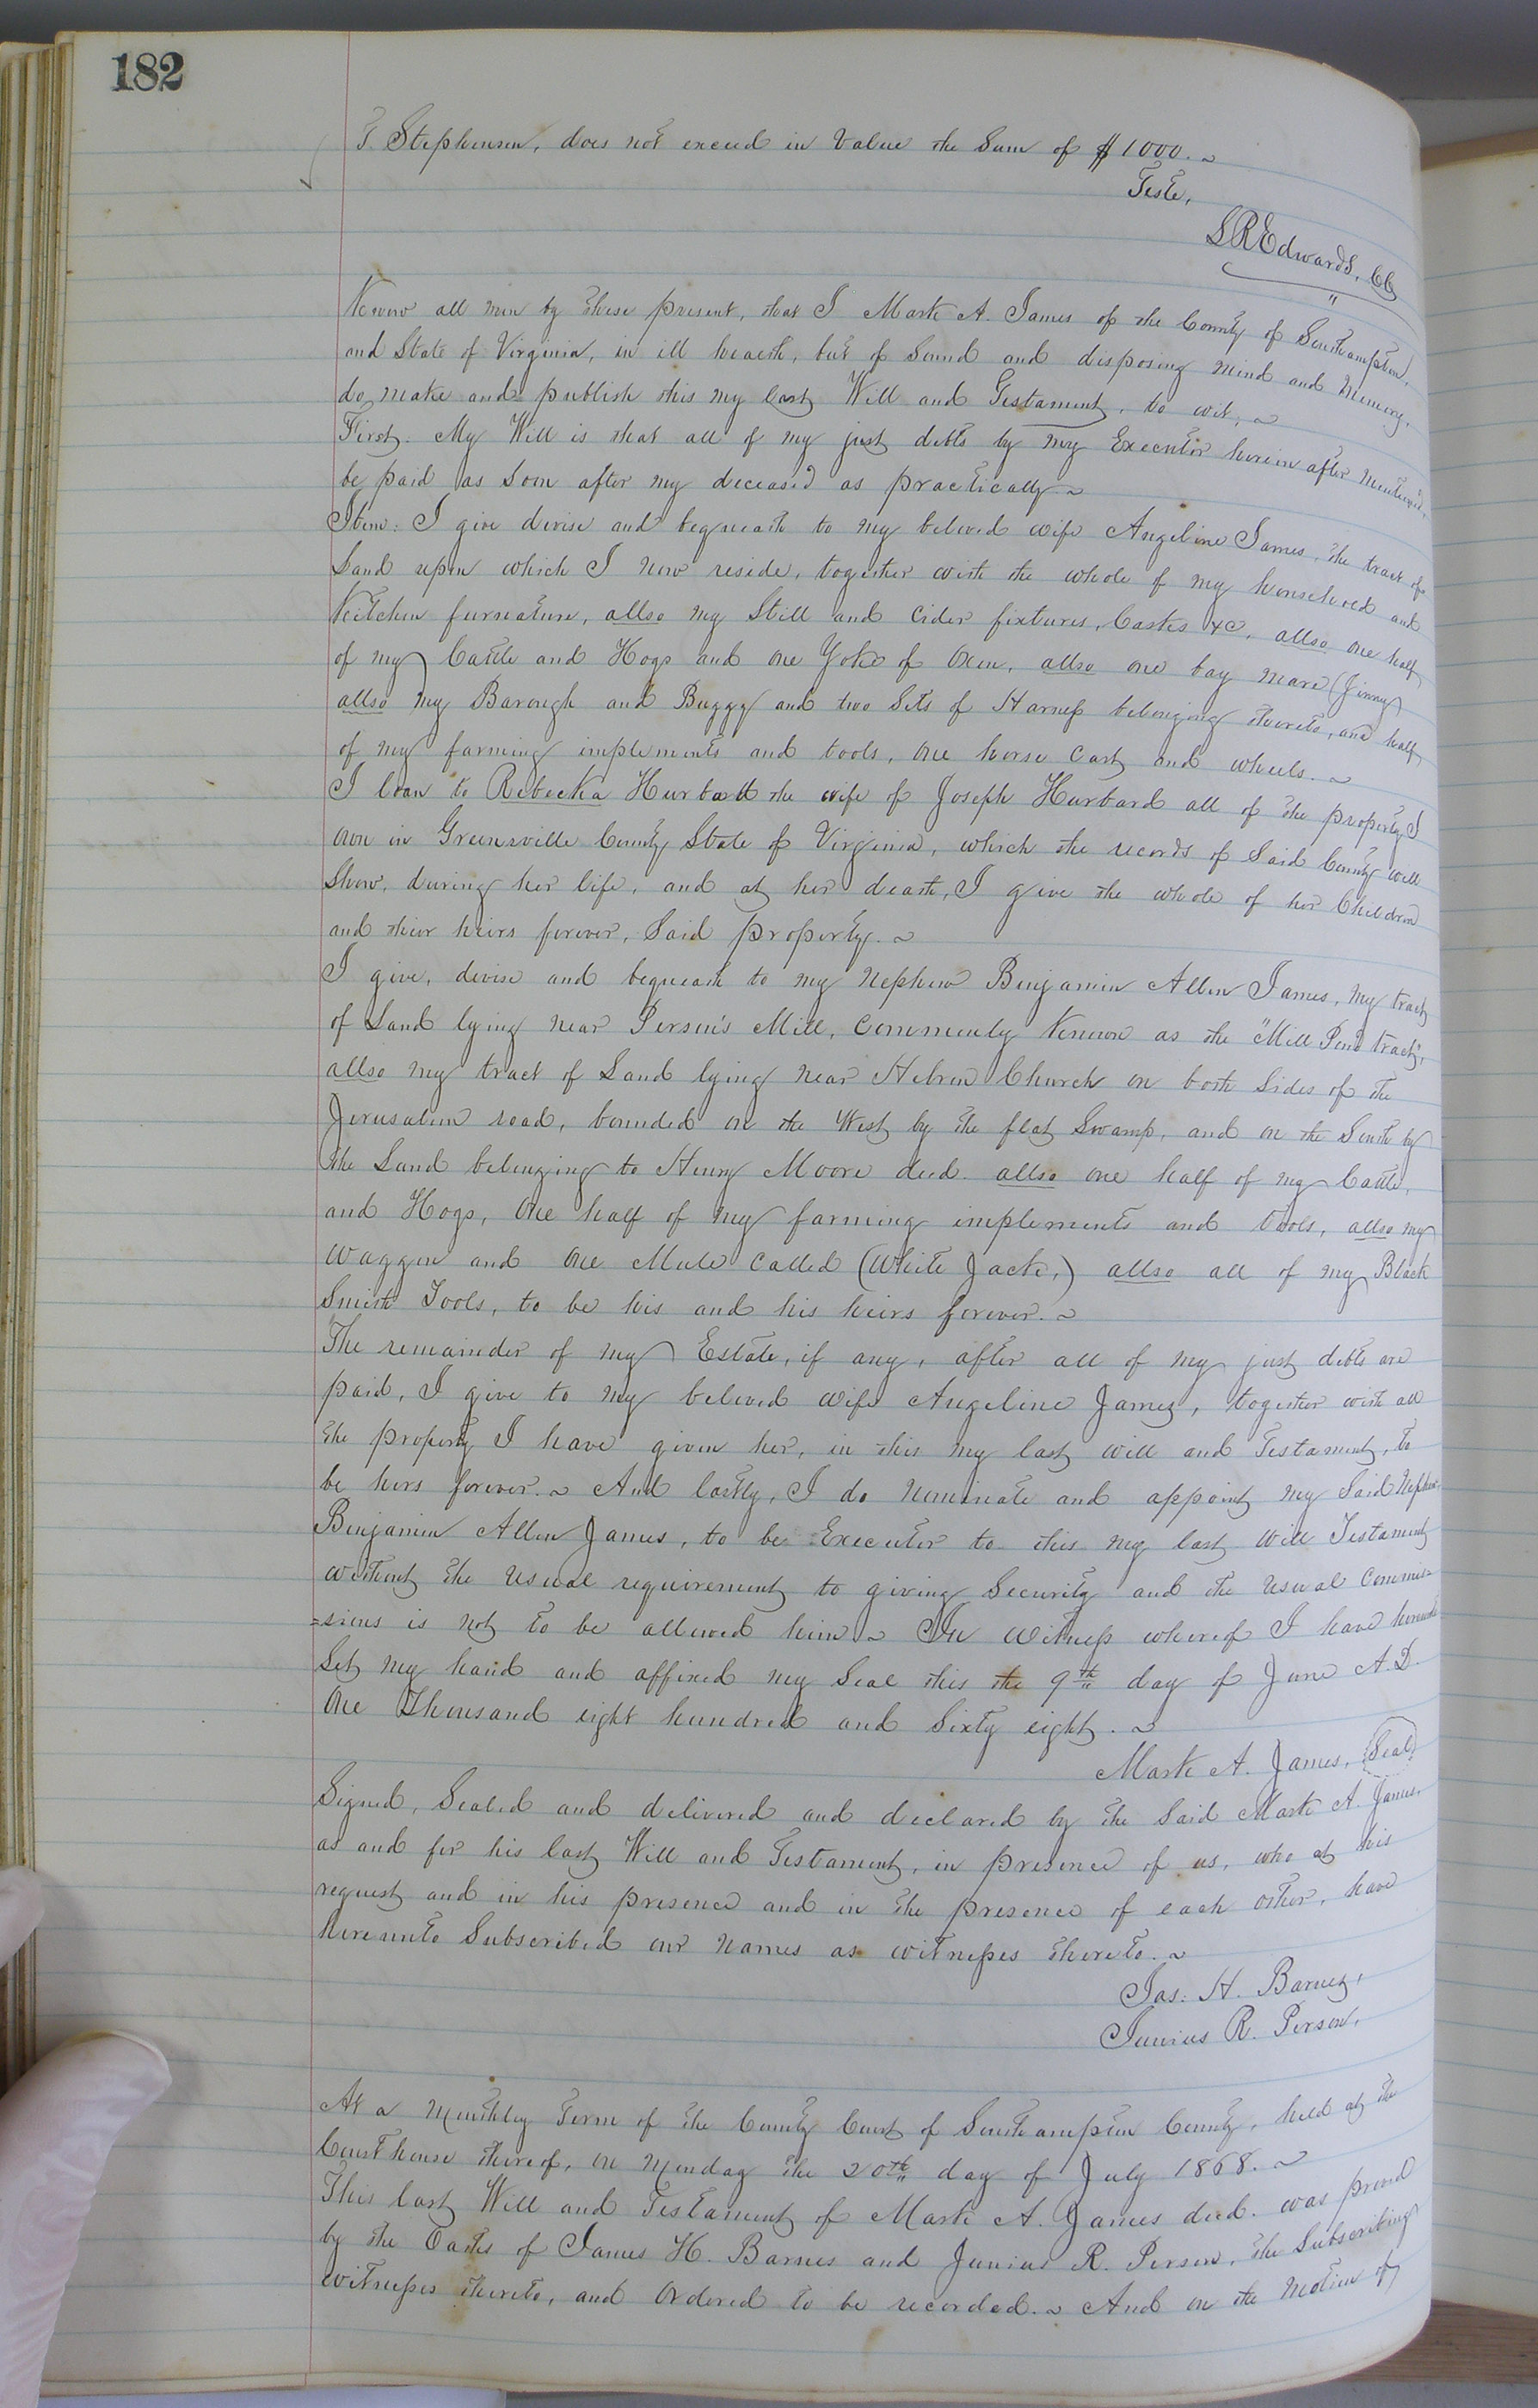 182
T. Stephenson, does not exceed in value the Sum of $1000.~
Teste,
L R Edwards, CC
Know all men by these present, that I Mark A. James of the County of Southampton,
and State of Virginia, in ill health, but of Sound and disposing mind and Memory,
do make and publish this my last Will and Testament, to wit; ~
First. My Will is that all of my just debts by my Executor herein after mentioned,
be paid as Soon after my deceased as practically ~
Item: I give devise and bequeath to my beloved wife Angeline James, the tract of
Land upon which I now reside, together with the whole of my household and
Kitchen furnature, allso my Still and Cider fixtures, Casks &c, allso one half
of my Cattle and Hogs and one Yoke of Oxen, allso one bay mare (Jinny)
allso my Barough and Buggy and two Sets of Harness belonging thereto, and half
of my farming implements and tools, one horse Cart and wheels. ~
I loan to Rebecka Hurbard the wife of Joseph Hurbard all of the property I
own in Greensville County State of Virginia, which the records of Said County will
Show, during her life, and at her death, I give the whole of her Children
and their heirs forever, Said property. ~
I give, devise and bequeath to my Nephew Benjamin Allen James, my tract
of Land lying near Person's Mill, Commonly Known as the "Mill Pond tract",
allso my tract of Land lying near Hebron Church on both Sides of the
Jerusalem road, bounded on the West by the flat Swamp, and on the South by
the Land belonging to Henry Moore decd. allso one half of my Cattle,
and Hogs, One half of my farming implements and tools, allso my
Waggon and One Mule Called (White Jack,) allso all of my Black
Smith Tools, to be his and his heirs forever. ~
The remainder of my Estate, if any, after all of my just debts are
paid, I give to my beloved wife Angeline James, together with all
the property I have given her, in this my last will and Testament, to
be hers forever. ~ And lastly, I do nominate and appoint my Said Nephew
Benjamin Allen James, to be Executor to this my last Will Testament
without the Usual requirement to giving Security and the Usual Commis=
=sions is not to be allowed him. ~ In Witness whereof I have hereunto
Set my hand and affixed my Seal this the 9th day of June A.D.
One Thousand eight hundred and Sixty eight. ~
Mark A. James, (Seal)
Signed, Sealed and delivered and declared by the Said Mark A. James,
as and for his last Will and Testament, in presence of us, who at his
request and in his presence and in the presence of each other, have
hereunto Subscribed our names as witnesses thereto. ~
Jas: H. Barnes,
Junius R. Person,
At a Monthly Term of the County Court of Southampton County, held at the
Court house thereof, on Monday the 20th day of July 1868. ~
This last Will and Testament of Mark A. James decd. was proved
by the Oaths of James H. Barnes and Junius R. Person, the Subscribing
witnesses thereto, and Ordered to be recorded. ~ And on the Motion of